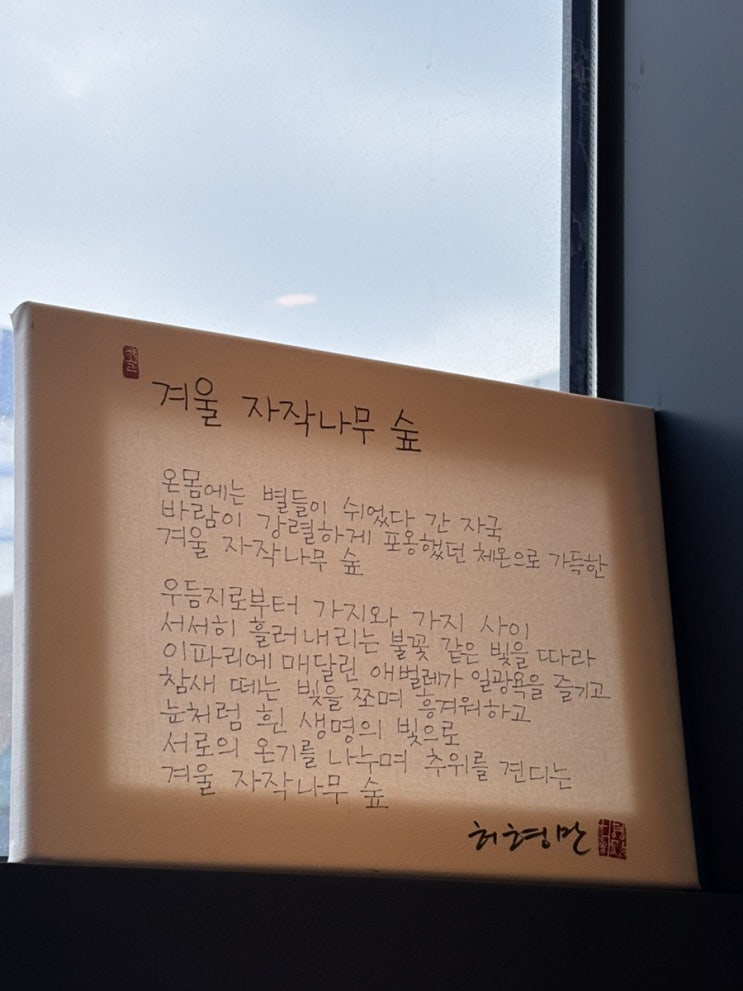 겨울 자작나무 숲
온몸에는 별들이 쉬었다 간 자국
바람이 강렬하게 포옹했던 체온으로 가득한
겨울 자작나무 숲
우듬지로부터 가지와 가지 사이
서서히 흘러내리는 불꽃 같은 빛을 따라
이파리에 매달린 애벌레가 일광욕을 즐기고
참새 떼는 빛을 쪼며 흥겨워하고
눈처럼 흰 생명의 빛으로
서로의 온기를 나누며 추위를 견디는
겨울 자작나무 숲
허형만